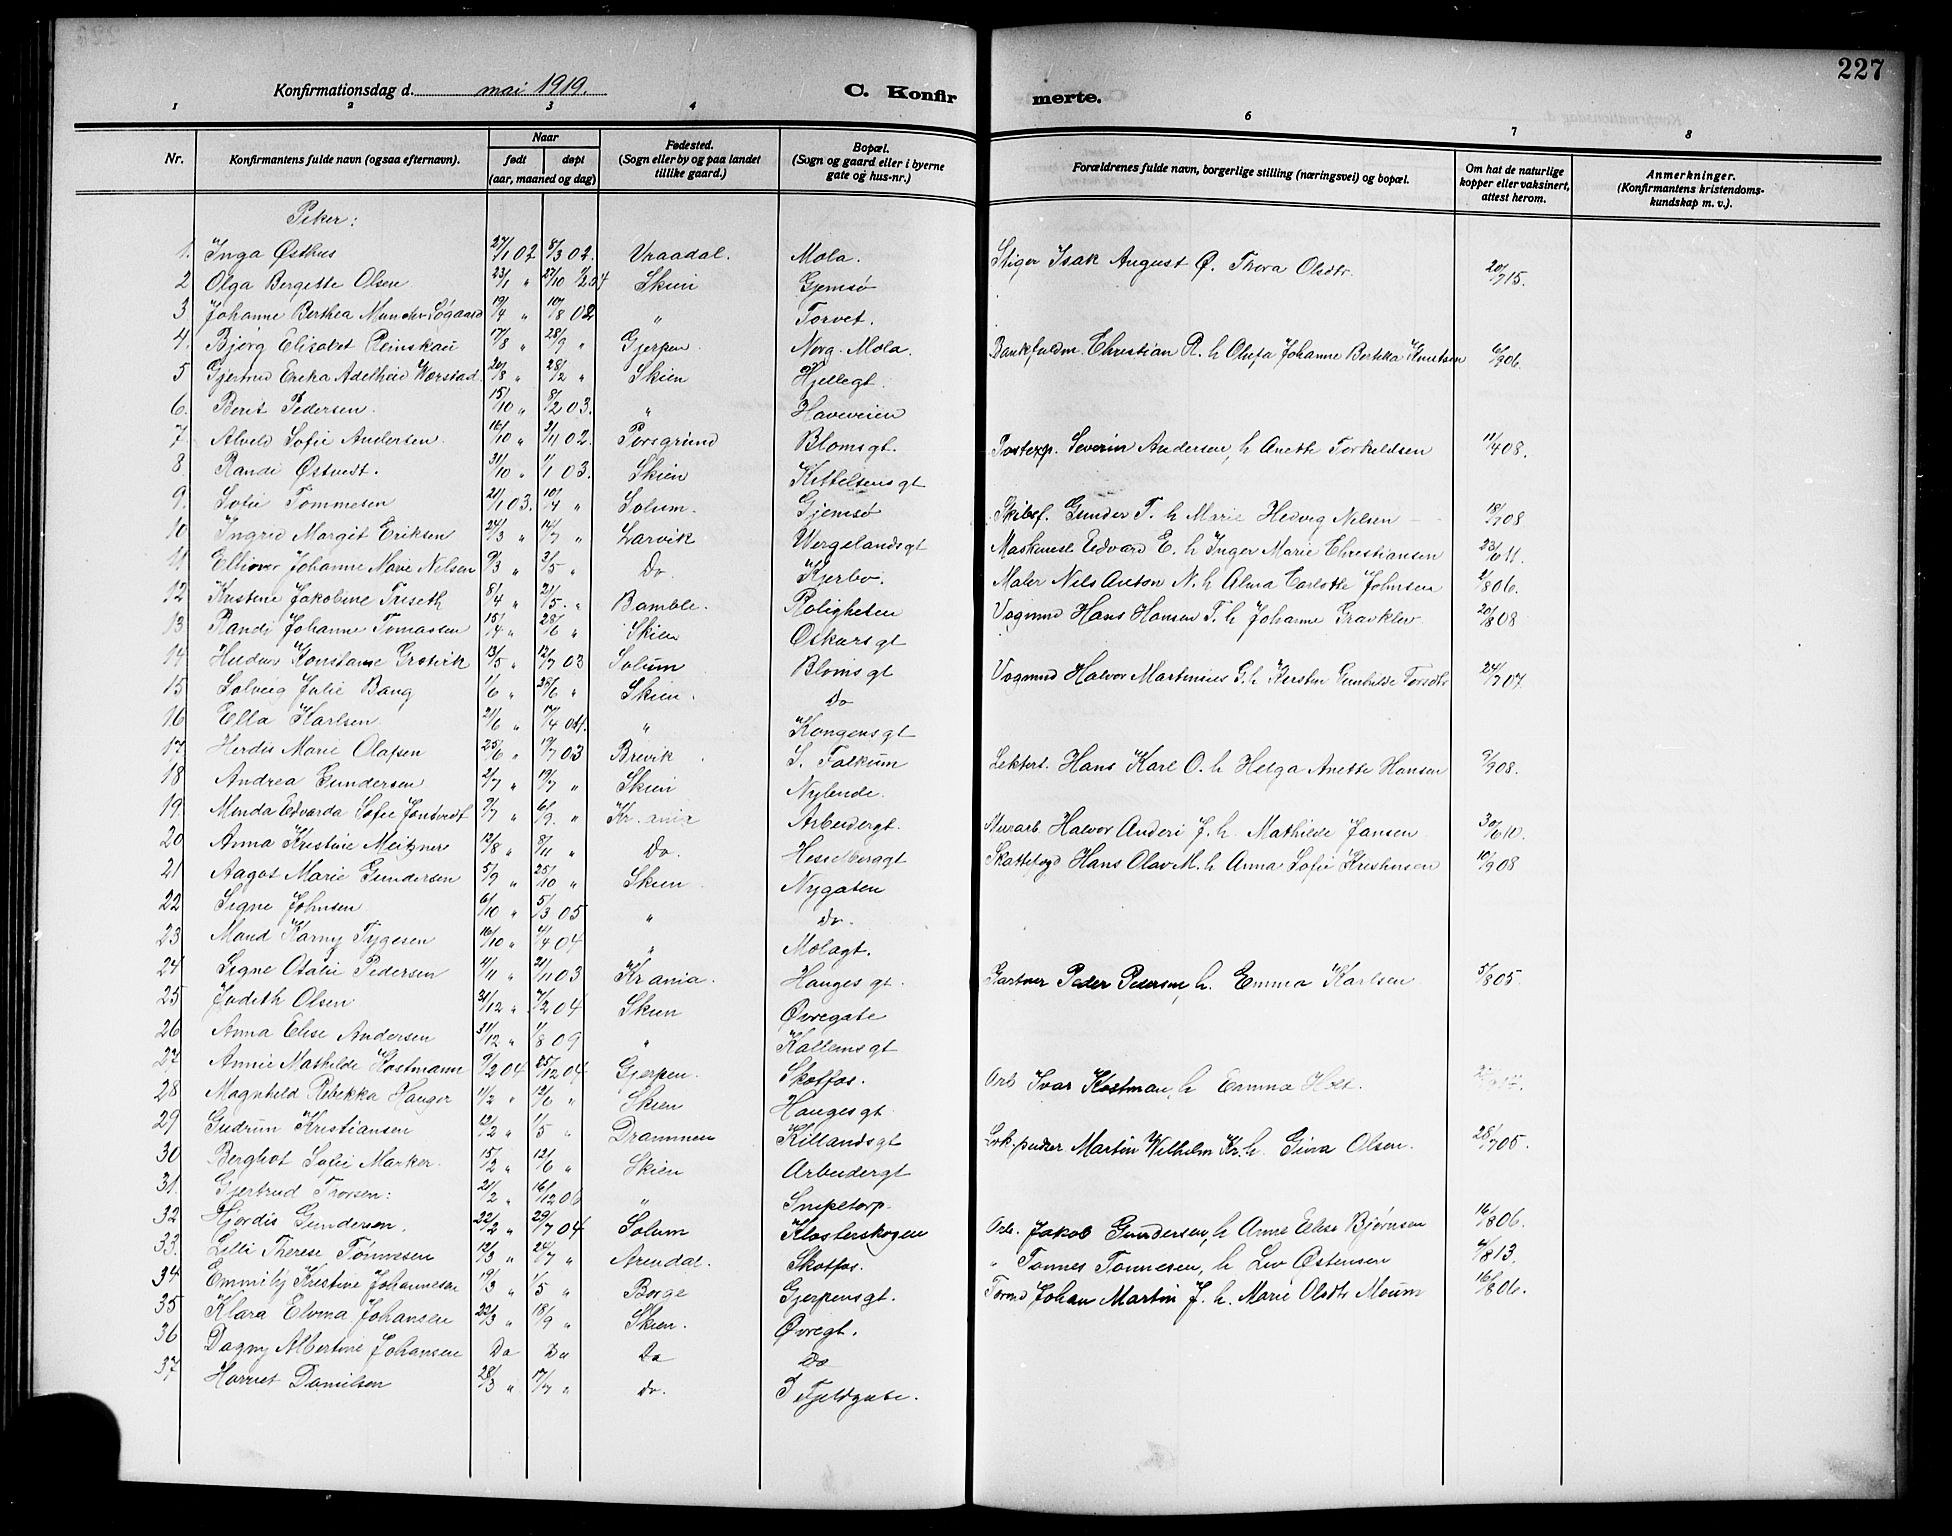 227
Konfirmationsdag d. mai 1919.
C. Konfirmerte.
1 2 3 4 5 6 7 8
Nr. Konfirmantens fulde navn (ogsaa efternavn). Naar født døpt (aar, maaned og dag) Fødested. (Sogn eller by og paa landet tillike gaard.) Bopæl. (Sogn og gaard eller i byerne gate og hus-nr.) Forældrenes fulde navn, borgerlige stilling (næringsvei) og bopæl. Om hat de naturlige kopper eller vaksinert, attest herom. Anmerkninger. (Konfirmantens kristendomskundskap m. v.).
Piker:
1. Inga Østhus 27/1 02 8/3 02. Vraadal. Mola. Stiger Isak August Ø. Thora Olsdtr. 20/7 15.
2 Olga Bergette Olsen 23/1 " 27/10 Skien Gjemsø
3 Johanne Berthea Munch-Søgaard 19/4 " 10/8 02 " Torvet.
4. Bjørg Elisabet Reinskau 17/8 " 28/9 " Gjerpen. Mola. Bankfuldm. Christian R. h Olufa Johanne Bertha Knutsen
5 Gjerma Erika Adelheid Wærstad 20/8 " 28/12 " Skien Hjellegt.
6. Berit Pedersen. 15/10 " 8/2 03. " Haveveien
7. Alvild Sofie Andersen. 16/10 " 2/11 02. Porsgrund Blomsgt. Postexp. Severin Andersen, h Anette Torkildsen 11/4 08.
8 Randi Østvedt. 31/10 " 1/1 03. Skien Kittelsensgt
9. Sofie Tommesen 21/1 03. 10/4 " Solum. Gjemsø Skibsf. Gunder T. h Marie Hedvig Nilsen 18/7 08
10 Ingrid Margit Eriksen 24/3 " 14/7 " Larvik Wergelandsgt Maskinest Edvard E. h Inger Marie Christiansen 23/6 11.
11 Ellinor Johanne Marie Nilsen 9/3 " 3/5 " Do. Kjerbo. Maler Nils Anton N. h Alma Carlotte Johnsen 2/8 06.
12 Kristine Jakobine Triseth 8/4 " 21/5. " Bamble. Roligheten Vognmd Hans Hansen T. h Johanne Gravklev 20/8 08
13 Randi Johanne Tomassen 15/4 " 28/6 " Skien Oskarsgt
14 Huldur Konstanse Grotvik 13/5 " 12/7 03 Solum Blomsgt Vognmd Halvor Martinius G. h Kirsten Gunhilde Torsdtr 24/7 07.
15 Solveig Julie Bang 1/6 " 28/6 " Skien. Do
16 Ella Karlsen 21/6 " 17/4 04. " Kongensgt
17. Herdis Marie Olafsen 25/6 " 19/7 03 Brevik. S. Falkum Hans Karl O. h Helga Anette Hansen 9/9 08.
18 Andrea Gundersen 2/7 " 19/7 " Skien Nylende.
19. Minda Edvarda Sofie Jontvedt 9/7 " 6/9. " Kr. ania Arbeidergt. Murarb Halvor Anderi J. h. Mathilde Jansen 30/6 10.
20 Anna Kristine Meitzner 12/8 " 8/11 " Do. Hesselbergsgt Skattefogd Hans Olav M. h Anna Sofie Kristensen 10/9 08
21 Aagot Marie Gundersen 5/9 " 25/10 " Skien. Nygaten
22 Signe Johnsen 6/10 " 5/3 05 " Do.
23 Maud Karny Tygesen 16/10 " 4/4 04 " Molagt.
24 Signe Otalie Pedersen 4/11 " 21/11 03 Kr ania. Haugesgt. Gartner Peder Pedersen, h. Emma Karlsen 5/8 05.
25 Judith Olsen 31/12 " 7/2 04 Skien Øvregate
26 Anna Elise Andersen 31/12 " 1/8 09 " Kallemsgt
27 Annie Mathilde Kostmann 9/2 04 25/12 04 Gjerpen. Skotfos. Arb Ivar Kostman, h Emma
28 Magnhild Rebekka Hauger 11/2 " 12/6 " Skien Haugesgt
29 Gudrun Kristiansen 12/2 " 1/5 " Drammen Killandsgt Lok.pudser Martin Wilhelm Kr. h. Gina Olsen. 28/7 05.
30 Berghot Sofie Marker. 15/2 " 12/6 " Skien Arbeidergt
31. Gjertrud Thorsen: 21/2 " 16/12 06 " Snipetorp.
32 Hjørdis Gundersen. 22/2 " 29/7 04 Solum Klosterskogen Arb. Jakob Gundersen, h Anne Elise Bjørnsen 16/8 06.
33. Lilli Therese Tønnesen 12/3 " 24/7 " Arendal. Skotfos. " Tønnes Tønnesen, h Liv Østensen 4/8 13.
34 Emmily Kristine Johannesen 19/3 " 1/5 " Borge Gjerpensgt. Johan Martin J. h. Marie Olsdtr Moum 16/8 06.
35 Klara Elvina Johansen 22/3 " 18/9 " Skien. Øvregt.
36 Dagny Albertine Johansen Do Do Do Do
37 Harriet Danielsen 28/3 " 17/7 " do. Fjeldgate.